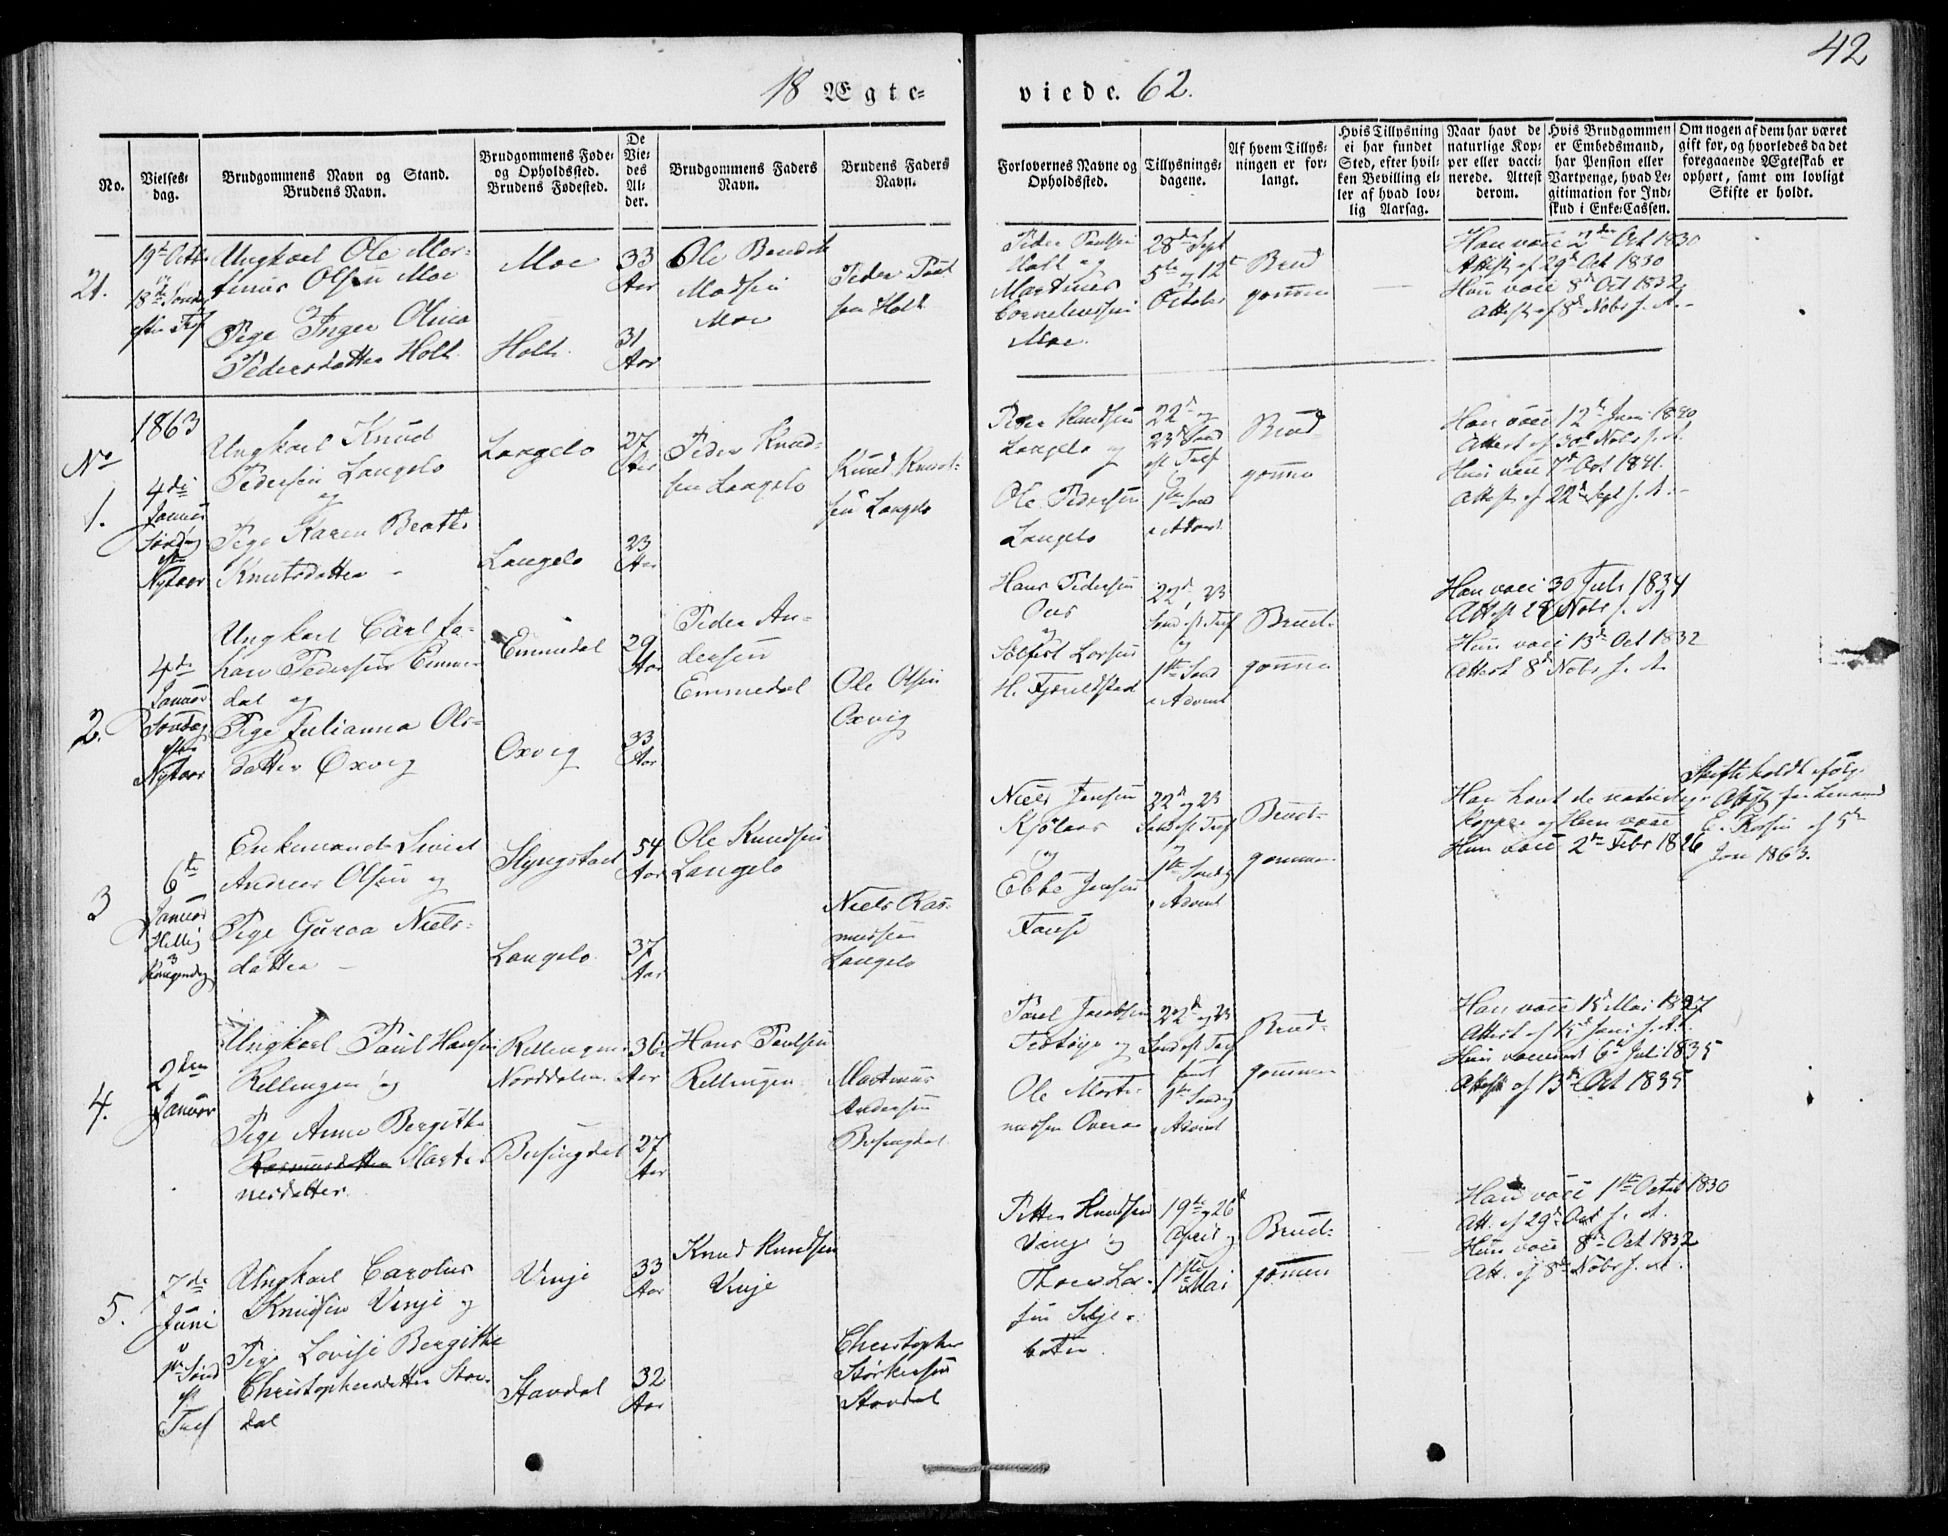 42
18 Ægte-
viede. 62.
No.
Vielses-
dag.
Brudgommens Navn og Stand.
Brudens Navn.
Brudgommens Føde-
og Opholdssted.
Brudens Fødested.
De
Vie-
des
Al-
der.
Brudgommens Faders
Navn.
Brudens Faders
Navn.
Forlovernes Navne og
Opholdssted.
Tillysnings-
dagene.
Af hvem Tillys-
ningen er for-
langt.
Hvis Tillysning
ei har fundet
Sted, efter hvil-
ken Bevilling el-
ler af hvad lov-
lig Aarsag.
Naar havt de
naturlige Kop-
per eller vacci-
nerede. Attest
derom.
Hvis Brudgommen
er Embedsmand,
har Pension eller
Vartpenge, hvad Le-
gitimation for Ind-
skud i Enke-Cassen.
Om nogen af dem har været
gift før, og hvorledes da det
foregaaende Ægteskab er
ophørt, samt om lovligt
Skifte er holdt.
21.
19de Octbr
18de Søndag
efter Tref
Ungkarl Ole Mor-
tinus Olsen Moe
og
Pige Inger Olina
Pedersdatter Holt
Moe
Holt.
33
Aar
31
Aar
Ole Bendik
Madsen
Moe
Peder Poul
sen Holt
Peder Paulsen
Holt og
Martinus
Corneliussen
Moe.
28de Sept
5te og 12te
October
Brud
gommen
Han vacc 2den Oct 1830
Attest af 29de Oct 1830
Hun vacc 8de Oct 1832
Attest af 8de Nobr s. A.
1863
No
1.
4de
Januar
Søndag
eft
Nytaar
Ungkarl Knud
Pedersen Langelo
og
Pige Karen Beathe
Knutsdatter
Langelo
Langelo
27
Aar
23
Aar
Peder Knud-
sen Langelo
Knud Knud-
sen Langelo
Peder Knudsen
Langelo og
Ole Pedersen
Langelo
22de og
23de Sønd
eft Tref
og
1ste Sønd
i Advent
Brud-
gommen
Han vacc 12te Juni 1840
Attest af 30de Nobr s. A.
Hun vacc 7de Oct 1841.
Attest af 22de Sept s. A.
2.
4de
Januar
Søndag
efter
Nytaar
Ungkarl Carl Jo-
han Pedersen Emme-
dal og
Pige Julianna Ols-
datter Oxvig
Emmedal
Oxvig
29
Aar
33
Aar
Peder An-
dersen
Emmedal
Ole Olsen
Oxvig
Hans Pedersen
Ous
og
Sølfest Larsen
H. Fjæuldstad
22de, 23
Sønd eft Tref
og
1ste Sønd
i Advent
Brud-
gommen
Han vacc 30 Juli 1834
Attest 28 Nobr s. A.
Hun vacc 13de Oct 1832
Attest 8de Nobr s. A.
3
6te
Januar
Hellig
3
Kongersdag
Enkemand Sivert
Andreas Olsen og
Pige Guroa Niels-
datter
Slyngstad
Langelo
54
Aar
37
Aar
Ole Knudsen
Langelo
Niels Ras-
mussen
Langelo
Niels Jensen
Kjølaas
og
Ebbe Jensen
22de og 23
Sønd eft Tref
og
1ste Søndg
i Advent
Brud-
gommen
Han havt de naturlige
Kopper og Hun vacc
Hun vacc 2den Febr 1826
Skifte holdt ifølge
Attest fra Lensmand
af 5te
Jan 1863.
4.
2den
Januar
Ungkarl Paul Hansen
Rellingen og
Pige Anne Bergithe
Rasmusdatter Marti-
nusdatter
Rellingen
Norddalen
Busingdal
36
Aar
27
Aar
Hans Paulsen
Rellingen
Martinus
Andersen
Busingdal
Paul Jacobsen
og
Ole Marti-
nussen Overaa
22de og 23
Sønd eft Tref
samt
1ste Søndg
i Advent
Brud-
gommen
Han vacc 15de Mai 1827
Attest af 15de Juni s. A.
Hun vaccineret 6te Juli 1835
Attest af 13de Oct 1835
5.
7de
Juni
1ste Sønd
eft
Tref
Ungkarl Carolus
Knudsen Vinje og
Pige Lovise Bergithe
Christophersdatter Stav-
dal
Vinje
Stavdal
33
Aar
32
Aar
Knud Knudsen
Vinje
Christopher
Størkersen
Stavdal
Petter Knudsen
Vinje og
Thore Lar-
sen Selje-
boten.
19de og 26de
April og
1ste Mai
Brud-
gommen
Han vacc 1ste Octbr 1830
Att. af 29de Oct s. A.
Hun vacc 8de Oct 1832
Att. af 8de Nobr s. A.